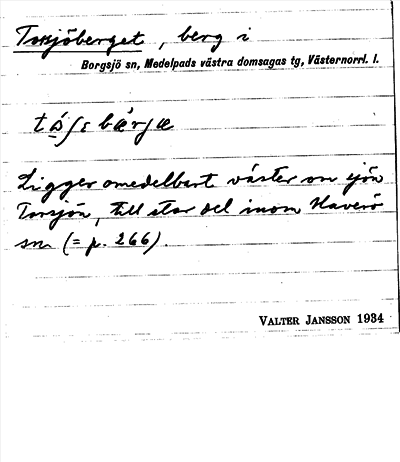 Torsjöberget, berg i
Borgsjö sn, Medelpads västra domsagas tg, Västernorrl. l.
Ligger omedelbart väster om sjön
Torsjön, till stor del inom Haverö
sn (= p. 266).
VALTER JANSSON 1934